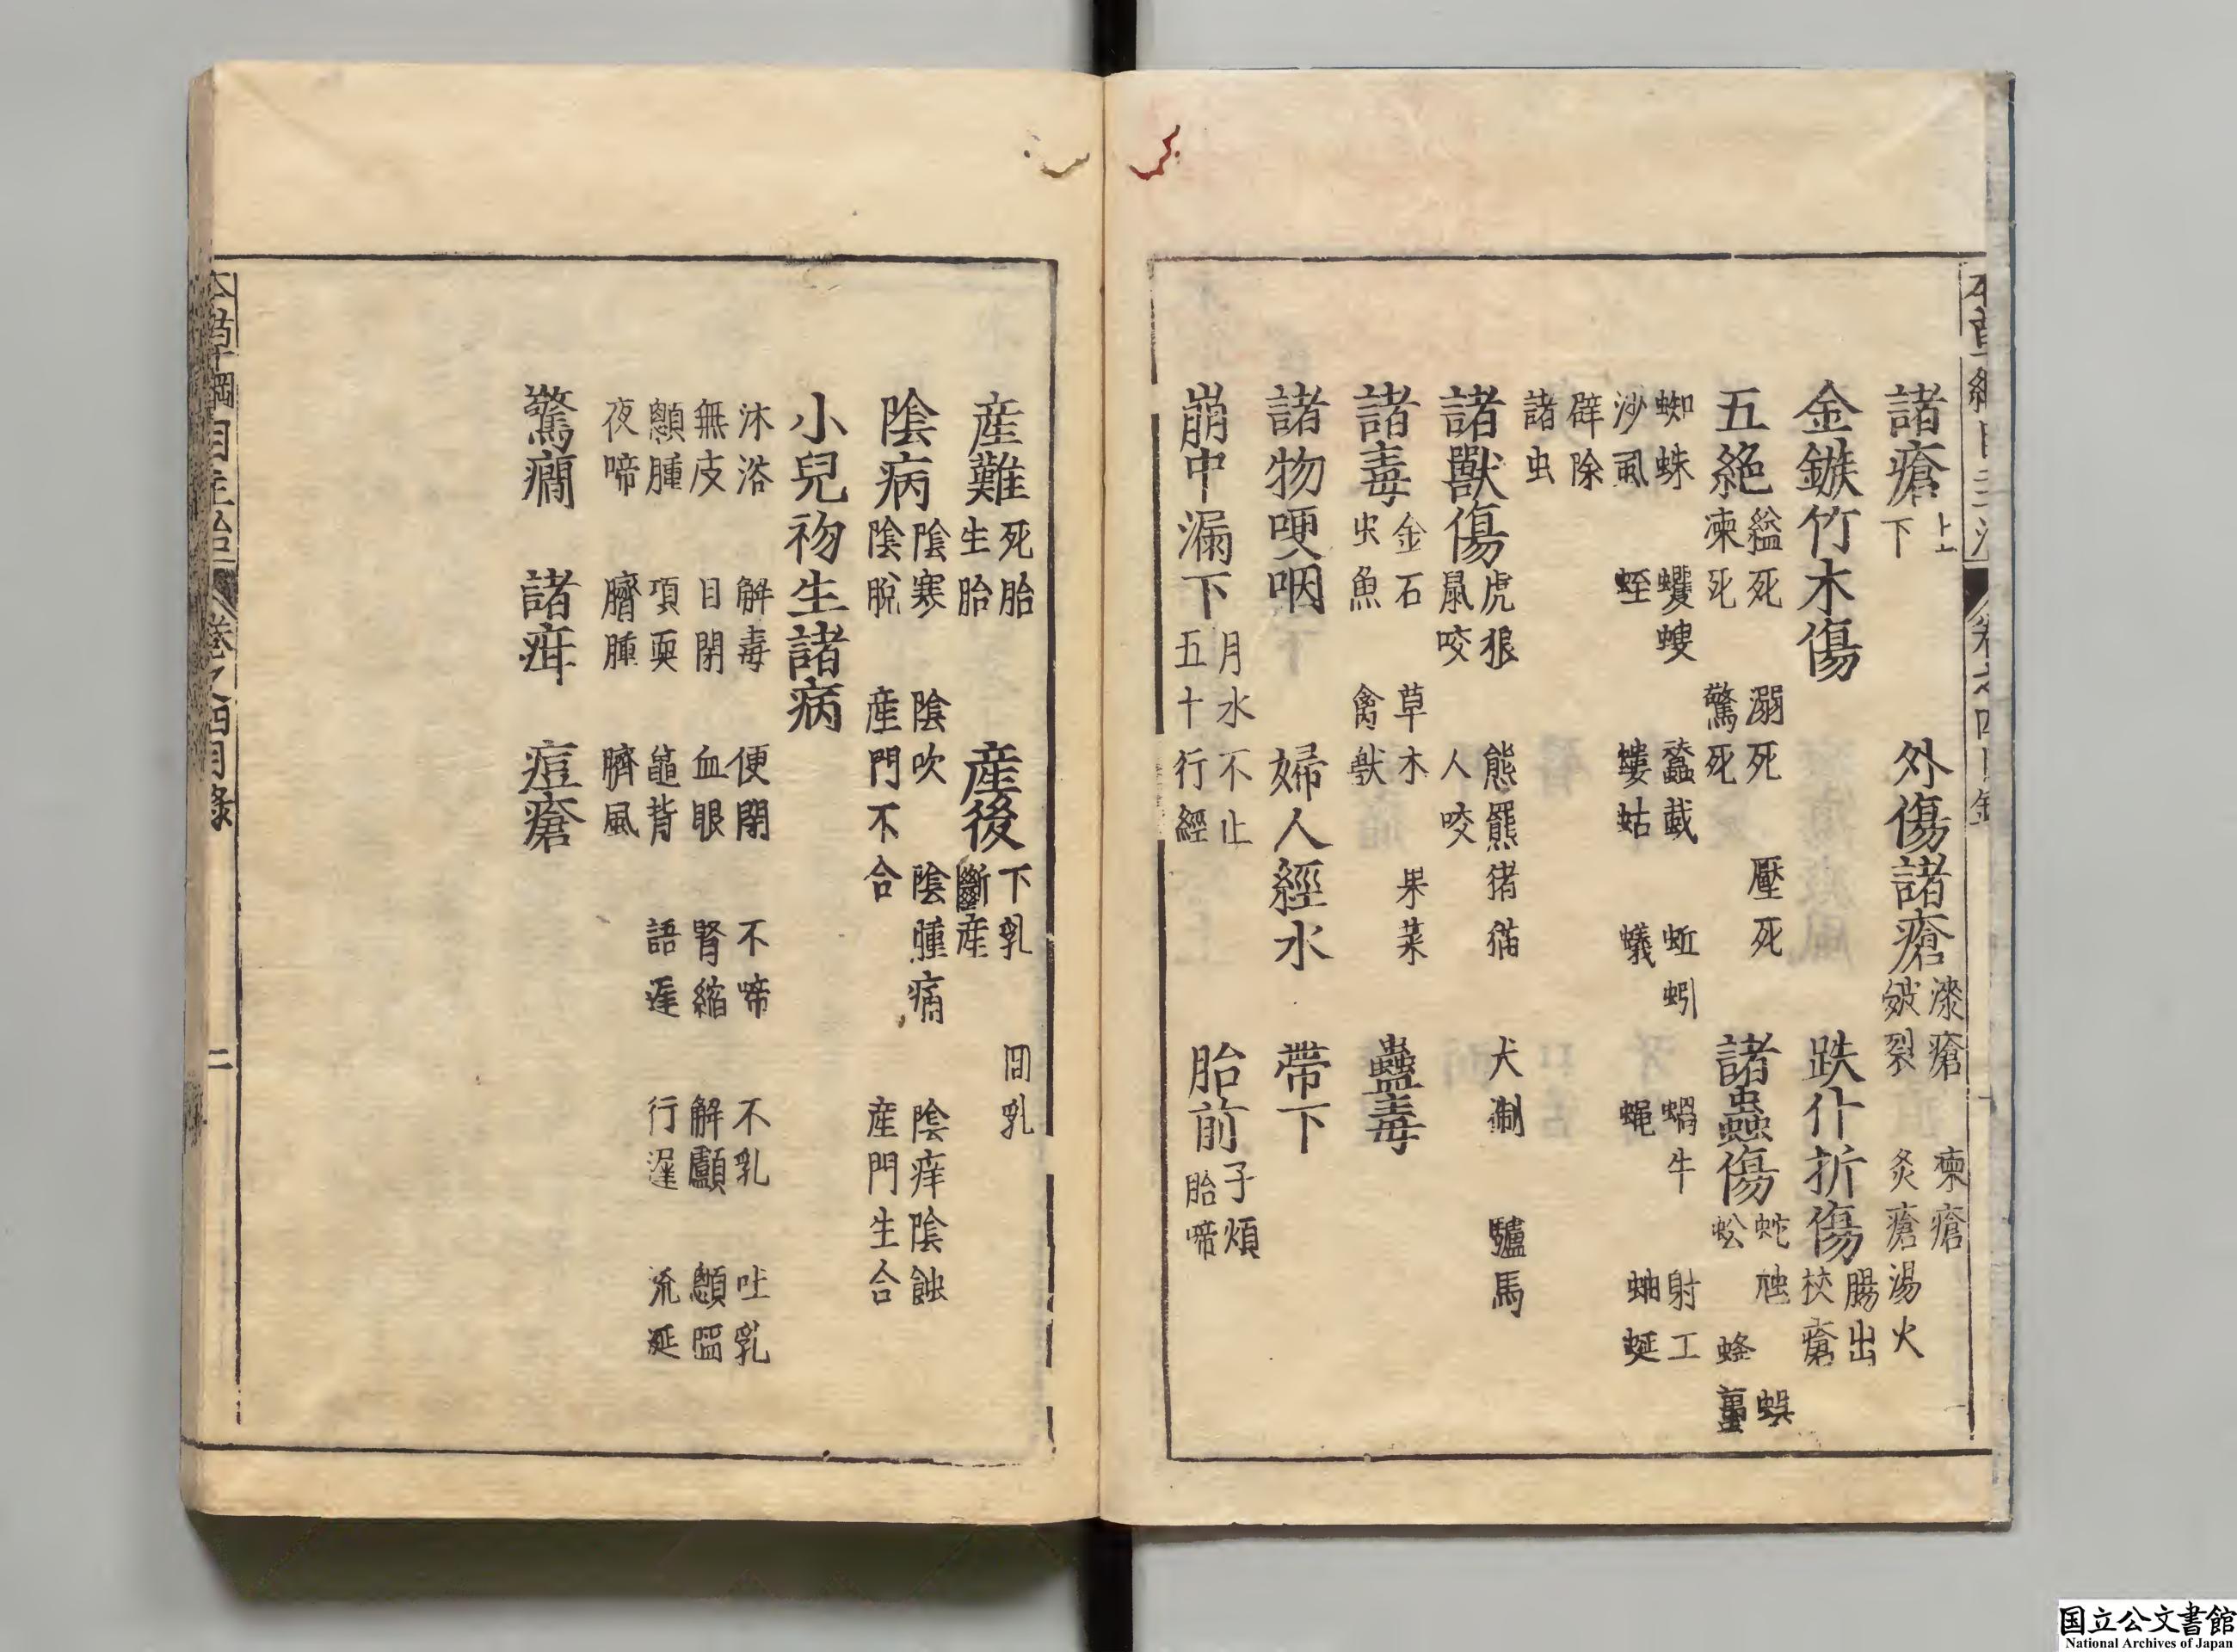 諸瘡上下 外傷諸瘡漆瘡 㾕瘡 皴裂 灸瘡 湯火
金鏃竹木傷 跌仆折傷腸出 杖瘡
五絶縊死 溺死 壓死 凍死 驚死 諸蟲傷蛇虺 蜈蚣 蜂蠆
蜘蛛 蠼螋 蠶蛓 蚯蚓 蝸牛 射工
沙虱 蛭 螻姑 蟻 蝇 蚰蜒
辟除
諸虫
諸獸傷虎狼 熊羆 猪猫 犬猘 驢馬 鼠咬 人咬
諸毒金石 草木 果菜 虫魚 禽獣 蠱毒
諸物哽咽 婦人經水 帶下
崩中漏下月水不止 五十行經 胎前子煩 胎啼
本草綱目主治 卷之四目錄
産難死胎 生胎 産後下乳 回乳 斷産
陰病陰寒 陰吹 陰腫痛 陰痒陰蝕 陰脫 産門不合 産門生合
小兒初生諸病
沐浴 解毒 便閉 不啼 不乳 吐乳
無皮 目閉 血眼 腎縮 解顱 顖䧟
顖腫 項耎 龜背 語遲 行遲 流涎
夜啼 臍腫 臍風
驚癎 諸疳 痘瘡
本草綱目主治 卷之四目錄 二
国立公文書館
National Archives of Japan